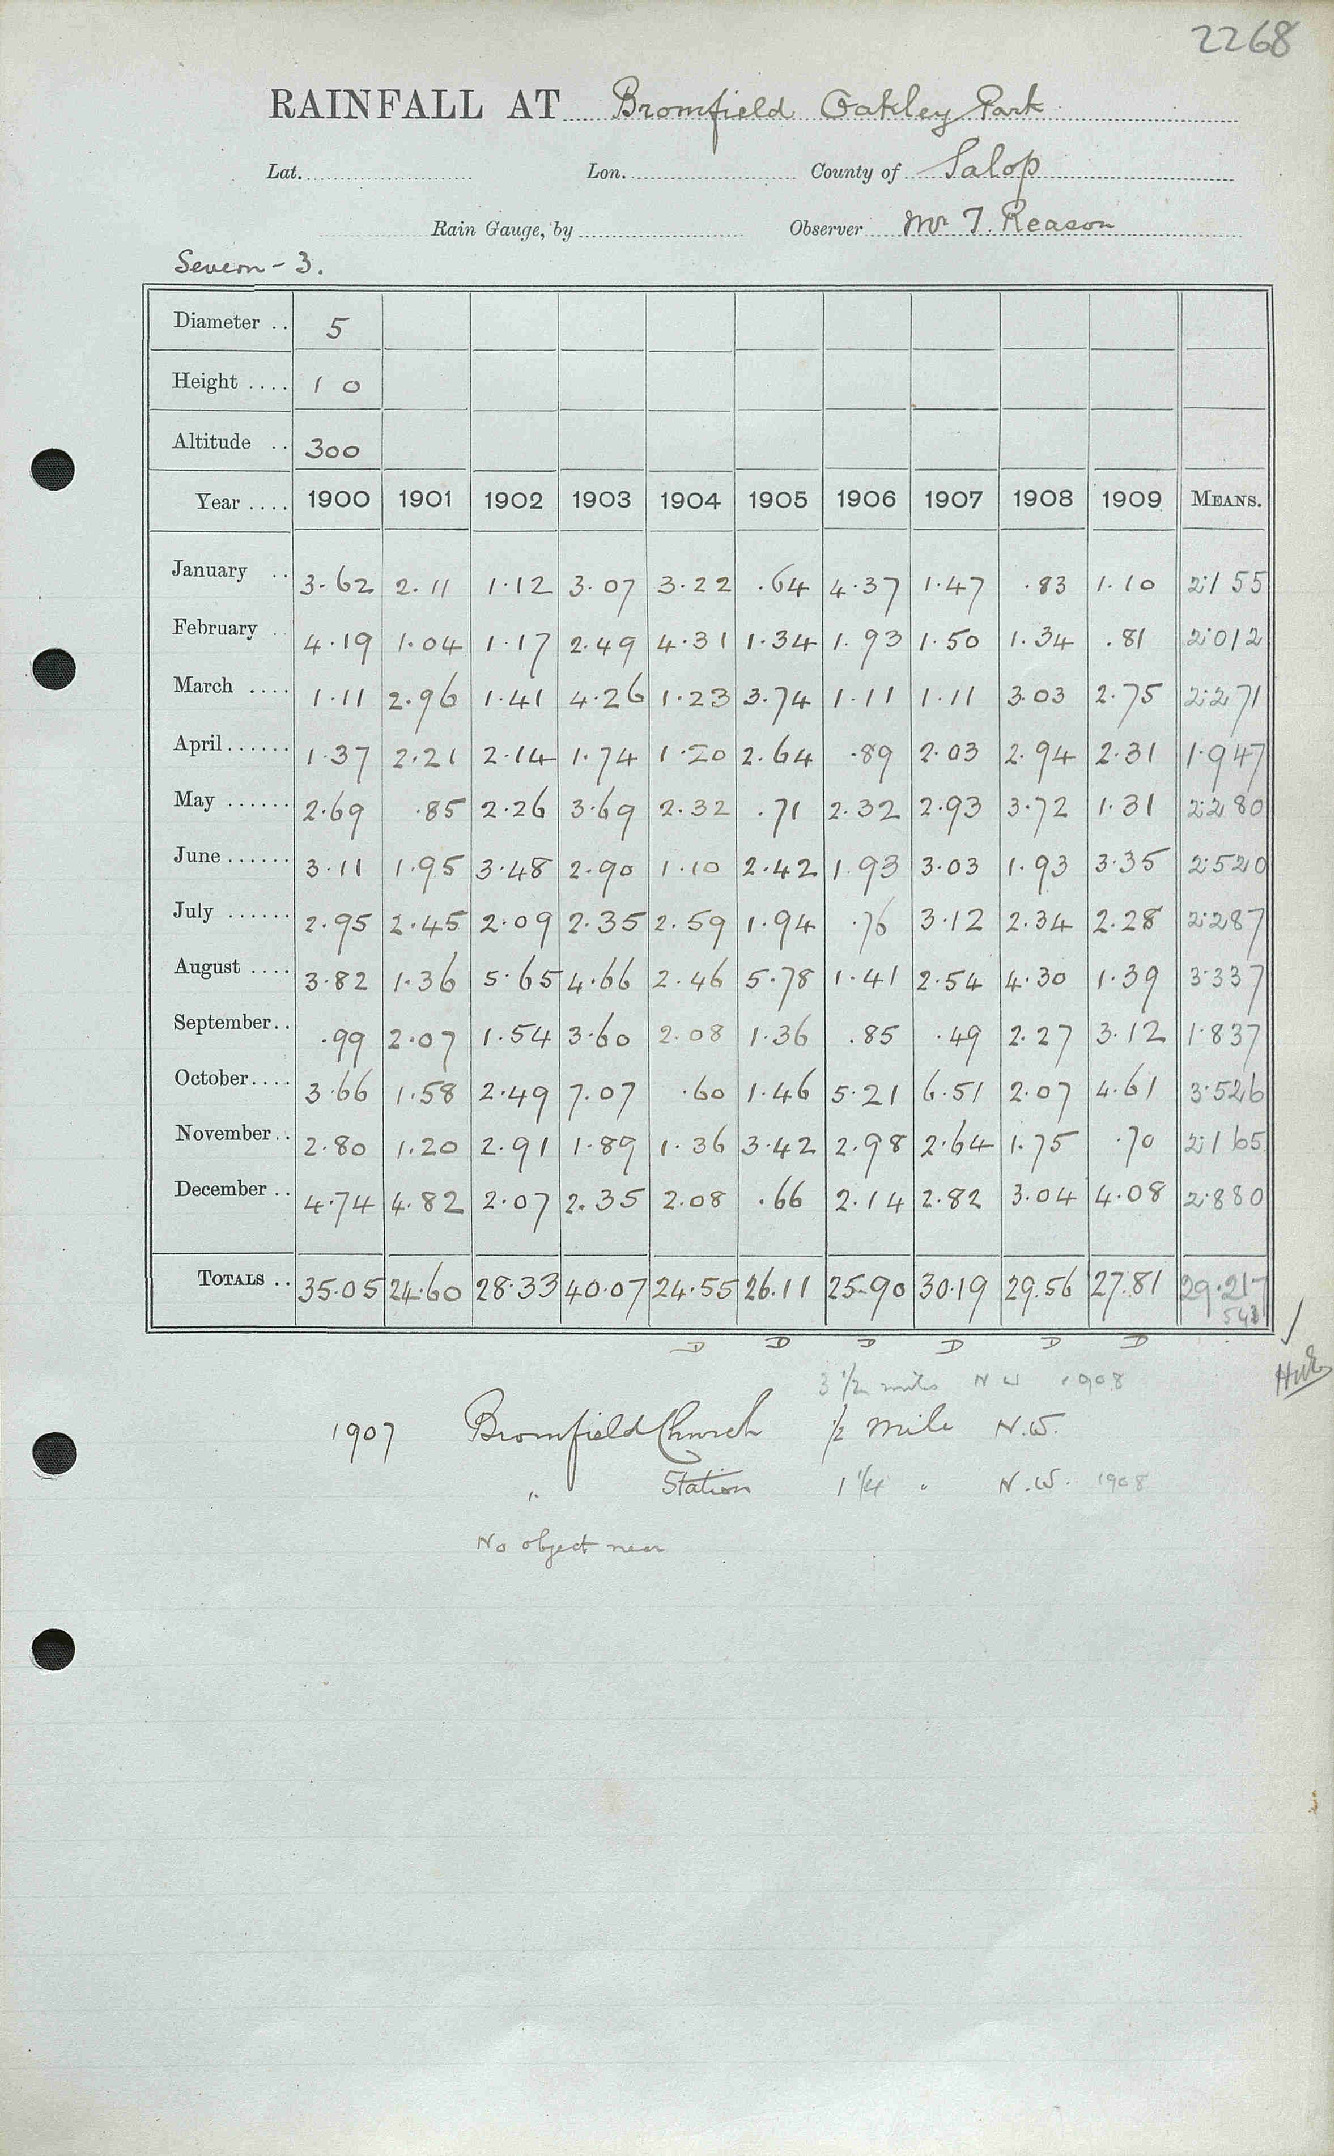 2268
RAINFALL AT Bromfield Oakley Park
Lat. Lon. County of Salop
Rain Gauge, by Observer Mr T. Reason
Severn - 3.
Diameter .. 5
Height .... 1 0
Altitude .. 300
Year .... 1900 1901 1902 1903 1904 1905 1906 1907 1908 1909 MEANS.
January .. 3.62 2.11 1.12 3.07 3.22 .64 4.37 1.47 .83 1.10 2.155
February .. 4.19 1.04 1.17 2.49 4.31 1.34 1.93 1.50 1.34 .81 2.012
March .... 1.11 2.96 1.41 4.26 1.23 3.74 1.11 1.11 3.03 2.75 2.271
April...... 1.37 2.21 2.14 1.74 1.20 2.64 .89 2.03 2.94 2.31 1.947
May ...... 2.69 .85 2.26 3.69 2.32 .71 2.32 2.93 3.72 1.31 2.280
June...... 3.11 1.95 3.48 2.90 1.10 2.42 1.93 3.03 1.93 3.35 2.520
July ...... 2.95 2.45 2.09 2.35 2.59 1.94 .76 3.12 2.34 2.28 2.287
August .... 3.82 1.36 5.65 4.66 2.46 5.78 1.41 2.54 4.30 1.39 3.337
September.. .99 2.07 1.54 3.60 2.08 1.36 .85 .49 2.27 3.12 1.837
October.... 3.66 1.58 2.49 7.07 .60 1.46 5.21 6.51 2.07 4.61 3.526
November.. 2.80 1.20 2.91 1.89 1.36 3.42 2.98 2.64 1.75 .70 2.165
December .. 4.74 4.82 2.07 2.35 2.08 .66 2.14 2.82 3.04 4.08 2.880
TOTALS .. 35.05 24.60 28.33 40.07 24.55 26.11 25.90 30.19 29.56 27.81 29.217
D D D D D D
3 1/2 miles N W 1908
1907 Bromfield Church 1/2 mile N.W.
" Station 1 1/4 " N.W. 1908
No object near